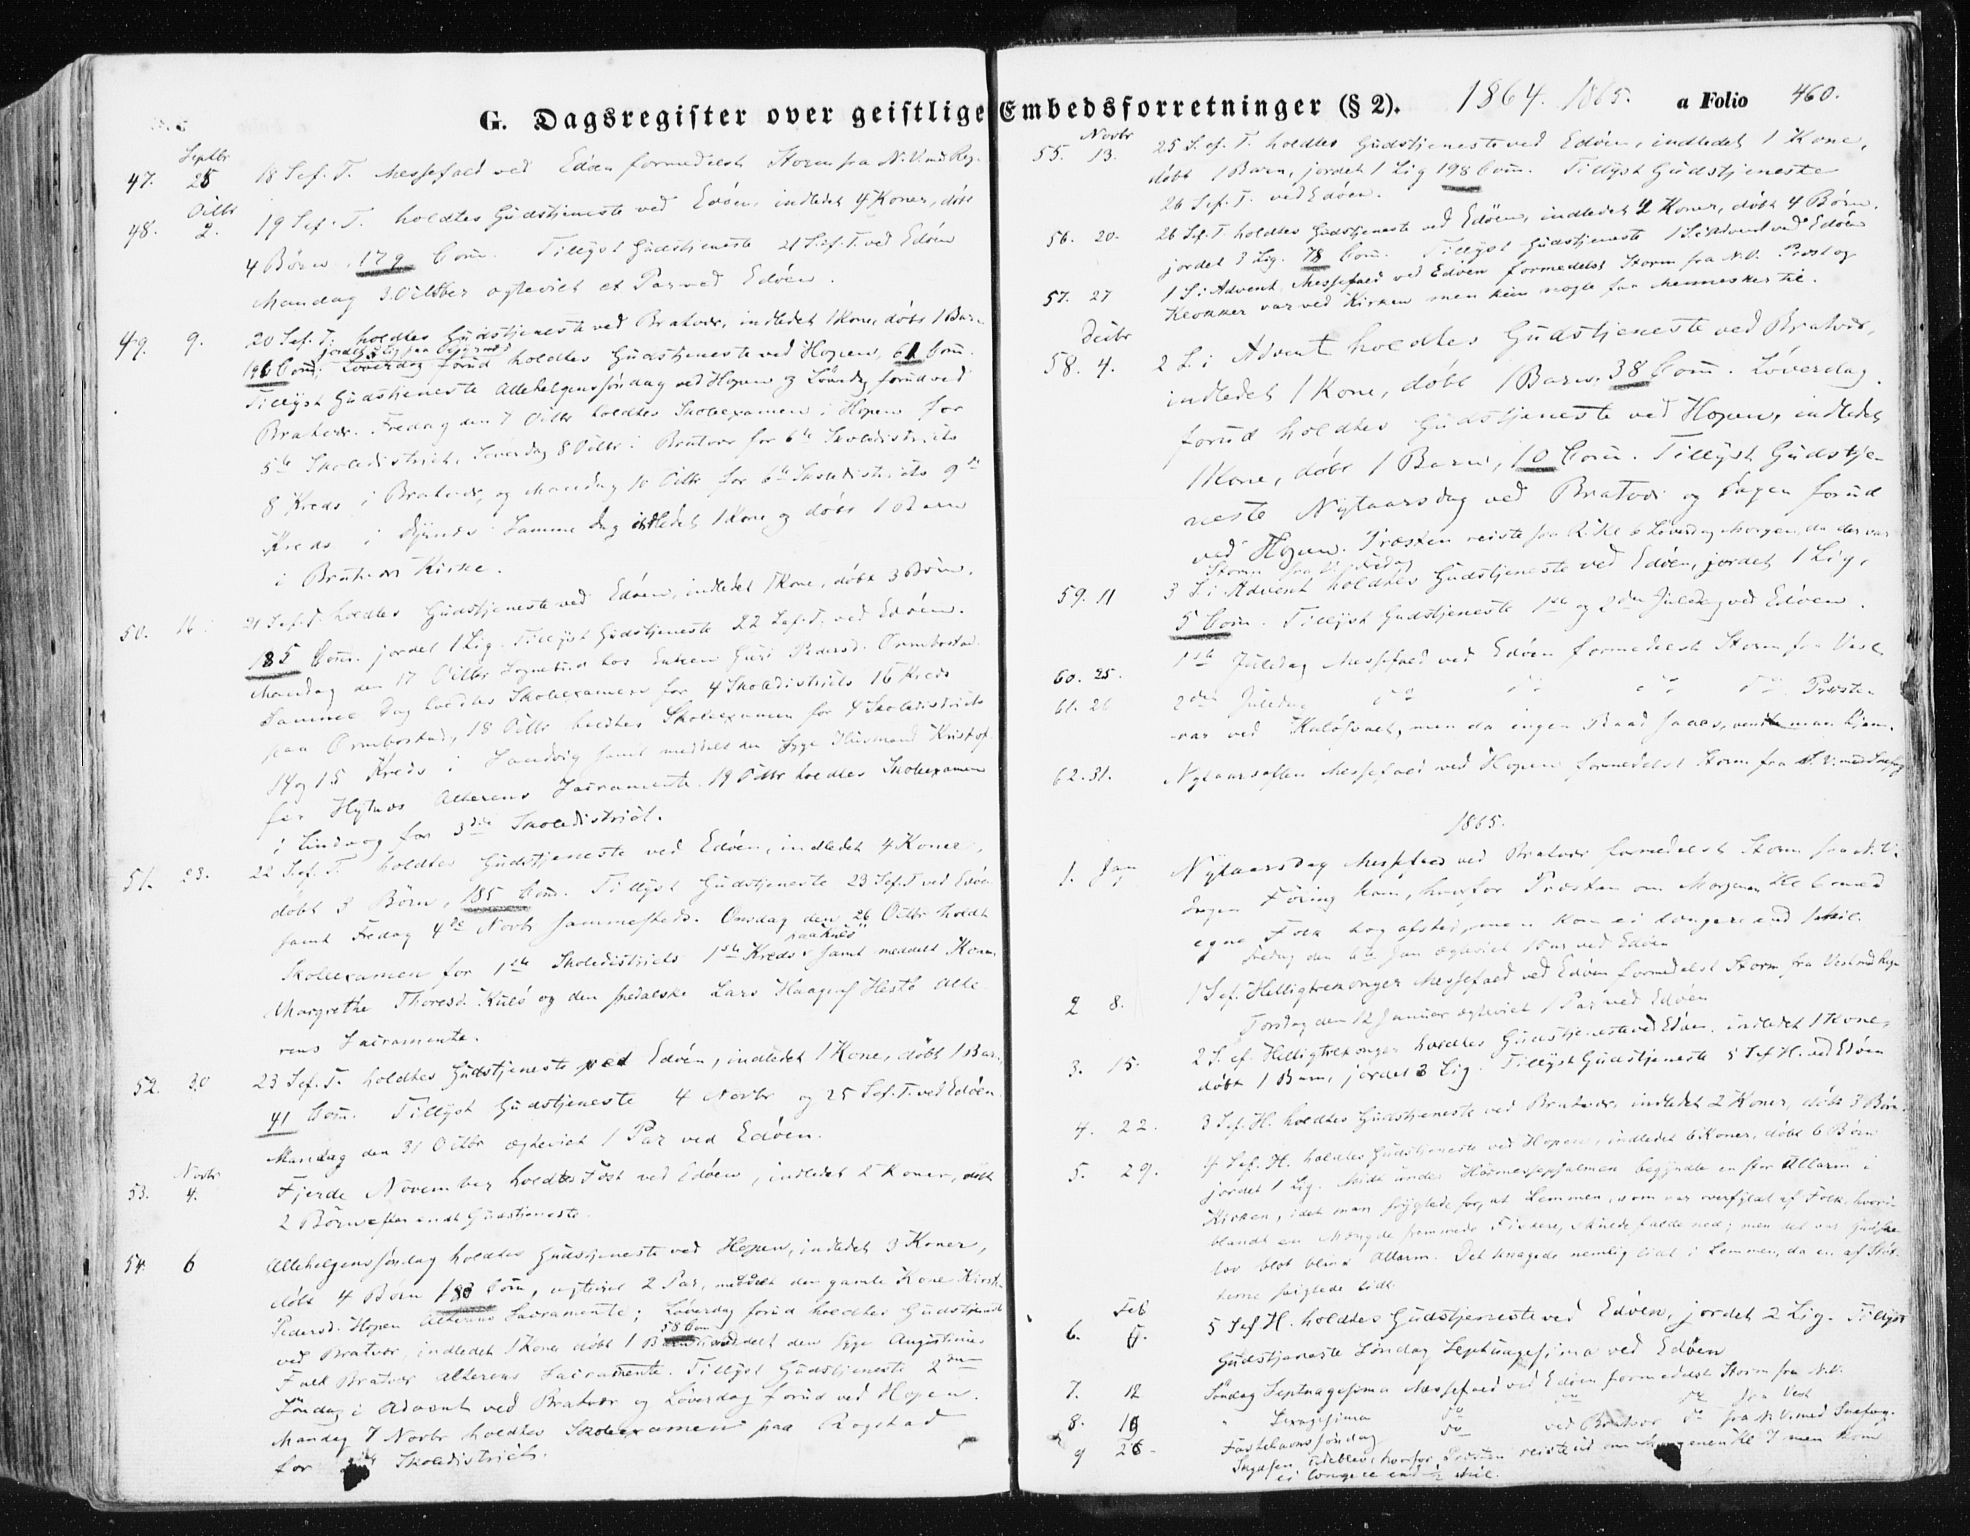 G. Dagsregister over geistlige Embedsforretninger (§ 2). 1864. 1865. a Folio 460.
Septbr
47. 25 18 S.ef.T. Messefald ved Edöen formedelst Storm fra N.V. med Regn.
Octbr
48. 2. 19 S.ef.T. holdtes Gudstjeneste ved Edöen, indledet 4 Koner, döbt
4 Börn, 179 Com. Tillyst Gudstjeneste 21 S.ef.T. ved Edöen
Mandag 3 October egteviet et Par ved Edöen.
49. 9. 20 S.ef.T. holdtes Gudstjeneste ved Bratvær, indledet 1 Kone, döbt 1 Barn
Com; Löverdag forud holdtes Gudstjeneste ved Hopen, 61 Com.
Tillyst Gudstjeneste Allehelgenssöndag ved Hopen og Löverdag forud ved
Bratvær. Fredag den 7 Octbr holdtes Skoleexamen i Hopen for
5te Skoledistrict, Löverdag 8 Octbr i Bratvær for 6te Skoledistricts
8 Kreds i Bratvær, og Mandag 10 Octbr for 6te Skoledistricts 9de
Kreds i . Samme Dag indledet 1 Kone og döbt 1 Barn
i Bratvær Kirke.
50. 16. 21 S.ef.T. holdtes Gudstjeneste ved Edöen, indledet 1 Kone, döbt 3 Börn,
185 Com. jordet 1 Lig. Tillyst Gudstjeneste 22 S.ef.T. ved Edöen.
Mandag den 17 Octbr hos Enken Guri Pedersd. Ormbostad.
Samme Dag holdtes Skoleexamen for 4 Skoledistricts 16 Kreds
paa Ormbostad, 18 Octbr holdtes Skoleexamen for 4 Skoledistricts
14 og 15 Kreds i Sandvig samt meddelt den syge Husmand Kristof-
fer Alterens Sacramente. 19 Octbr holdtes Skoleexamen
i for 3die Skoledistrict.
51. 23. 22 S.ef.T. holdtes Gudstjeneste ved Edöen, indledet 4 Koner,
döbt 3 Börn, 185 Com. Tillyst Gudstjeneste 23 S.ef.T. ved Edöen
samt Fredag 4de Novbr sammesteds. Onsdag den 26 Octbr holdt
Skoleexamen for 1ste Skoledistricts 1ste Kreds samt meddelt Konen
Margrethe Thoresd. Kulö og den spedalske Lars Haagens. Alte-
rens Sacramente.
52. 30 23 S.ef.T. holdtes Gudstjeneste ved Edöen, indledet 1 Kone, döbt 1 Barn,
41 Com. Tillyst Gudstjeneste 4 Novbr og 25 S.ef.T. ved Edöen.
Mandag den 31 Octbr egteviet 1 Par ved Edöen.
Novbr
53. 4. Fjerde November holdtes Fest ved Edöen, indledet 2 Koner, döbt
2 Börn efter endt Gudstjeneste.
54. 6 Allehelgenssöndag holdtes Gudstjeneste ved Hopen, indledet 3 Koner,
döbt 4 Börn Com, egteviet 2 Par, meddelt den gamle Kone
Pedersd. Hopen Alterens Sacramente; Löverdag forud holdtes Gudstjeneste
58 Com
ved Bratvær, indledet 1 Kone döbt 1 Barn meddelt den syge Augustinus
Falk Bratvær Alterens Sacramente. Tillyst Gudstjeneste 2den
Söndag i Advent ved Bratvær og Löverdag forud ved Hopen.
Mandag 7 Novbr holdtes Skoleexamen paa Rogstad
for Skoledistrict.
Novbr
55. 13. 25 S.ef.T. holdtes Gudstjeneste ved Edöen, indledet 1 Kone,
döbt 1 Barn, jordet 1 Lig 198 Com. Tillyst Gudstjeneste
26 S.ef.T. ved Edöen.
56. 20. 26 S.ef.T. holdtes Gudstjeneste ved Edöen, indledet 2 Koner, döbt 4 Börn,
jordet 3 Lig. 78 Com. Tillyst Gudstjeneste 1 S i Advent ved Edöen
57. 27 1 S i Advent Messefald ved Edöen formedelst Storm fra N.V. Præst og
Klokker var ved Kirken men kun nogle faa Mennesker til.
Decbr
58. 4. 2 S. i Advent holdtes Gudstjeneste ved Bratvær,
indledet 1 Kone, döbt 1 Barn, 38 Com. Löverdag
forud holdtes Gudstjeneste ved Hopen, indledet
1 Kone, döbt 1 Barn, 10 Com. Tillyst Gudstje-
neste Nytaarsdag ved Bratvær og Dagen forud
ved Hopen. Præsten reiste fra Kl 6 Löverdag Morgen, da der var
Storm fra Fredag
59. 11 3 S. i Advent holdtes Gudstjeneste ved Edöen, jordet 1 Lig,
5 Com. Tillyst Gudstjeneste 1ste og 2den Juledag ved Edöen.
60. 25. 1ste Juledag Messefald ved Edöen formedelst Storm fra Vest
61. 26 2den Juledag do do do do Præsten
var ved Kulösvaet, men da ingen Baad saaes, vendte man hjem.
62. 31. Nytaarsaften Messefald ved Hopen formedelst Storm fra S.V. med Snefog
1865.
1. Jan 1 Nytaarsdag Messefald ved Bratvær formedelst Storm fra N.V.
Ingen Föring kom, hvorfor Præsten om Morgenen Kl 6 med
egne Folk tog afsted, men kom ei længere end 1 Mil.
Fredag den 6te Jan egteviet 1 Par ved Edöen
2 8. 1 S.ef. Helligtrekonger Messefald ved Edöen formedelst Storm fra Vest med Regn
Torsdag den 12 Januar egteviet 1 Par ved Edöen
3. 15. 2 S. ef. Helligtrekonger holdtes Gudstjeneste ved Edöen, indledet 1 Kone,
döbt 1 Barn, jordet 3 Lig. Tillyst Gudstjeneste 5 S.ef.H. ved Edöen
4. 22. 3 S.ef.H. holdtes Gudstjeneste ved Bratvær, indledet 2 Koner, döbt 3 Börn
5. 29. 4 S.ef.H. holdtes Gudstjeneste ved Hopen, indledet 6 Koner, döbt 6 Börn
jordet 1 Lig. Midt under Höimessepsalmen begyndte en stor Allarm i
Kirken, idet man frygtede for, at Lemmen, som var overfyldt af Folk, hvori-
blandt en Mængde fremmede Fiskere, skulde falde ned; men det var Gudske-
lov blot blind Allarm. Det knagede nemlig lidt i Lemmen, da en af Stöt-
terne seiglede lidt.
Feb
6. 5. 5 S.ef.H. holdtes Gudstjeneste ved Edöen, jordet 2 Lig. Tillyst
Gudstjeneste Söndag Septuagesima ved Edöen
7. 12 Söndag Septuagesima Messefald ved Edöen formedelst Storm fra N.V.
8. 19 " Sexagesima do do do fra Vest
9 26 Fastelavnssöndag do ved Bratvær do fra N.V. med Snefog.
Skydsen udeblev, hvorfor Præsten reiste ud om Morgenen Kl 7 men kom
ei længere end ½ Mil.